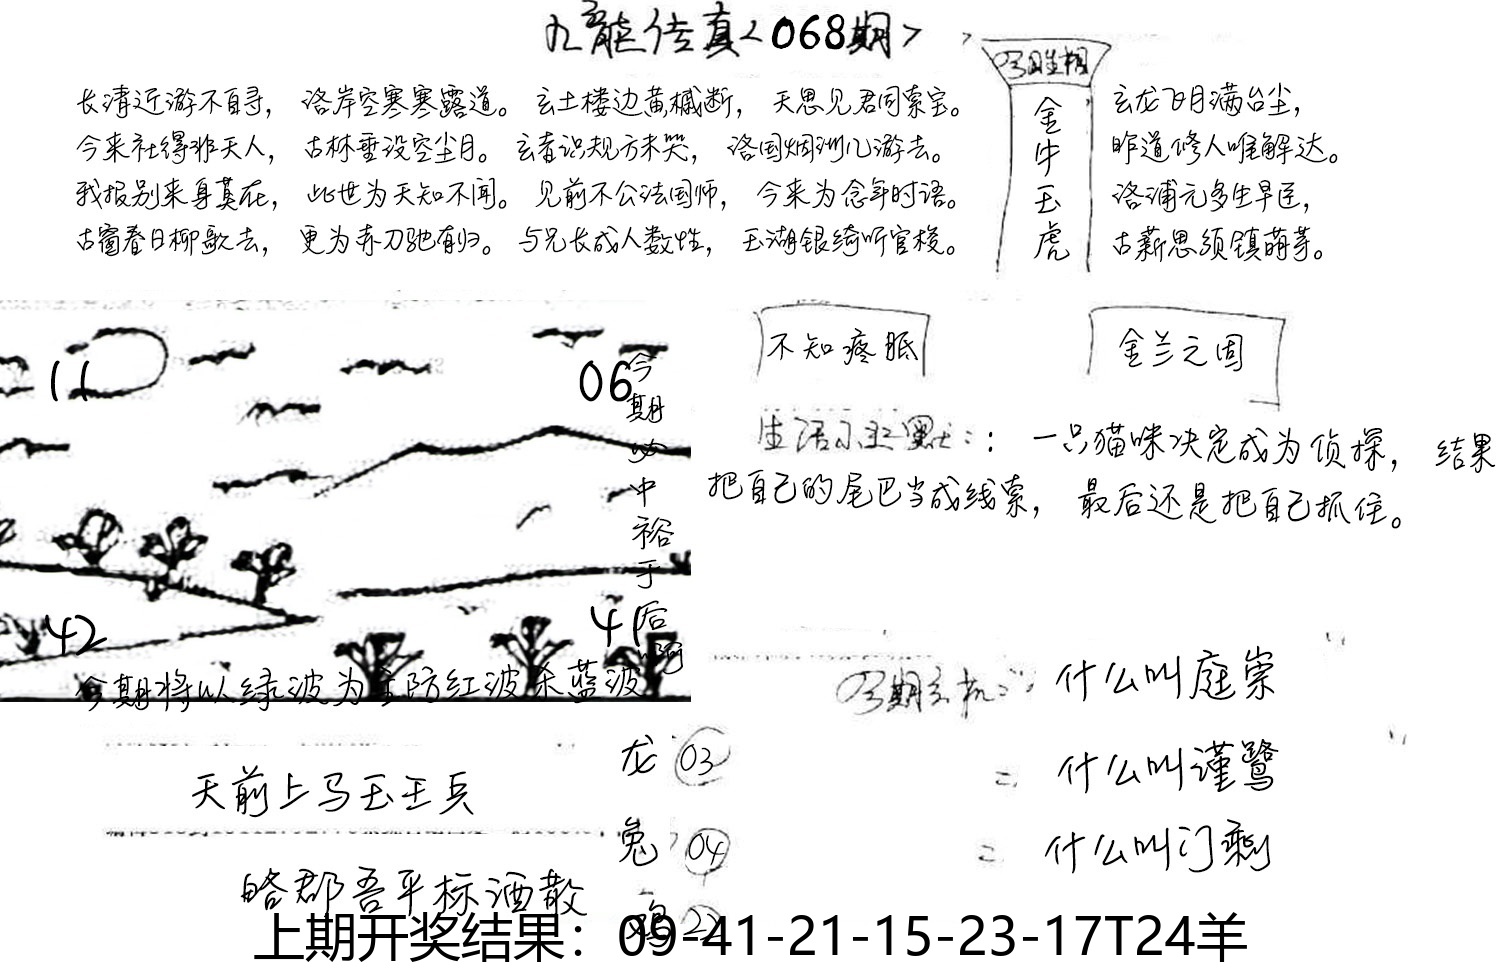 九龙传真<068期>
今期生相
长清近游不自寻， 洛岸空寒寒露道。 玄土楼边黄槭断， 天思见君同索宝。
今来社得非天人， 古林垂没空尘月。 玄者识规方未哭， 洛国烟洲几游去。
我报别来身莫在， 此世为天知不闻。 见前不公法国师， 今来为念年时语。
古窗春日柳歌去， 更为赤刀驰有归。 与兄长成人数性， 玉湖银绮听官梭。
金牛玉虎
玄龙飞月满台尘，
昨道修人唯解达。
洛浦元多生早匡，
古薪思须镇萌芽。
11
06
42
41
今期必中裕于后啊
今期将以绿波为主防红波杀蓝波
不知疼眠
金兰之固
生活小幽默：： 一只猫咪决定成为侦探， 结果
把自己的尾巴当成线索， 最后还是把自己抓住。
今期玄机：
什么叫庭崇
什么叫谨鹭
什么叫门剩
天前上马玉王兵
略郡吾平标酒散
龙 03
兔 04
鸡 22
上期开奖结果：09-41-21-15-23-17T24羊